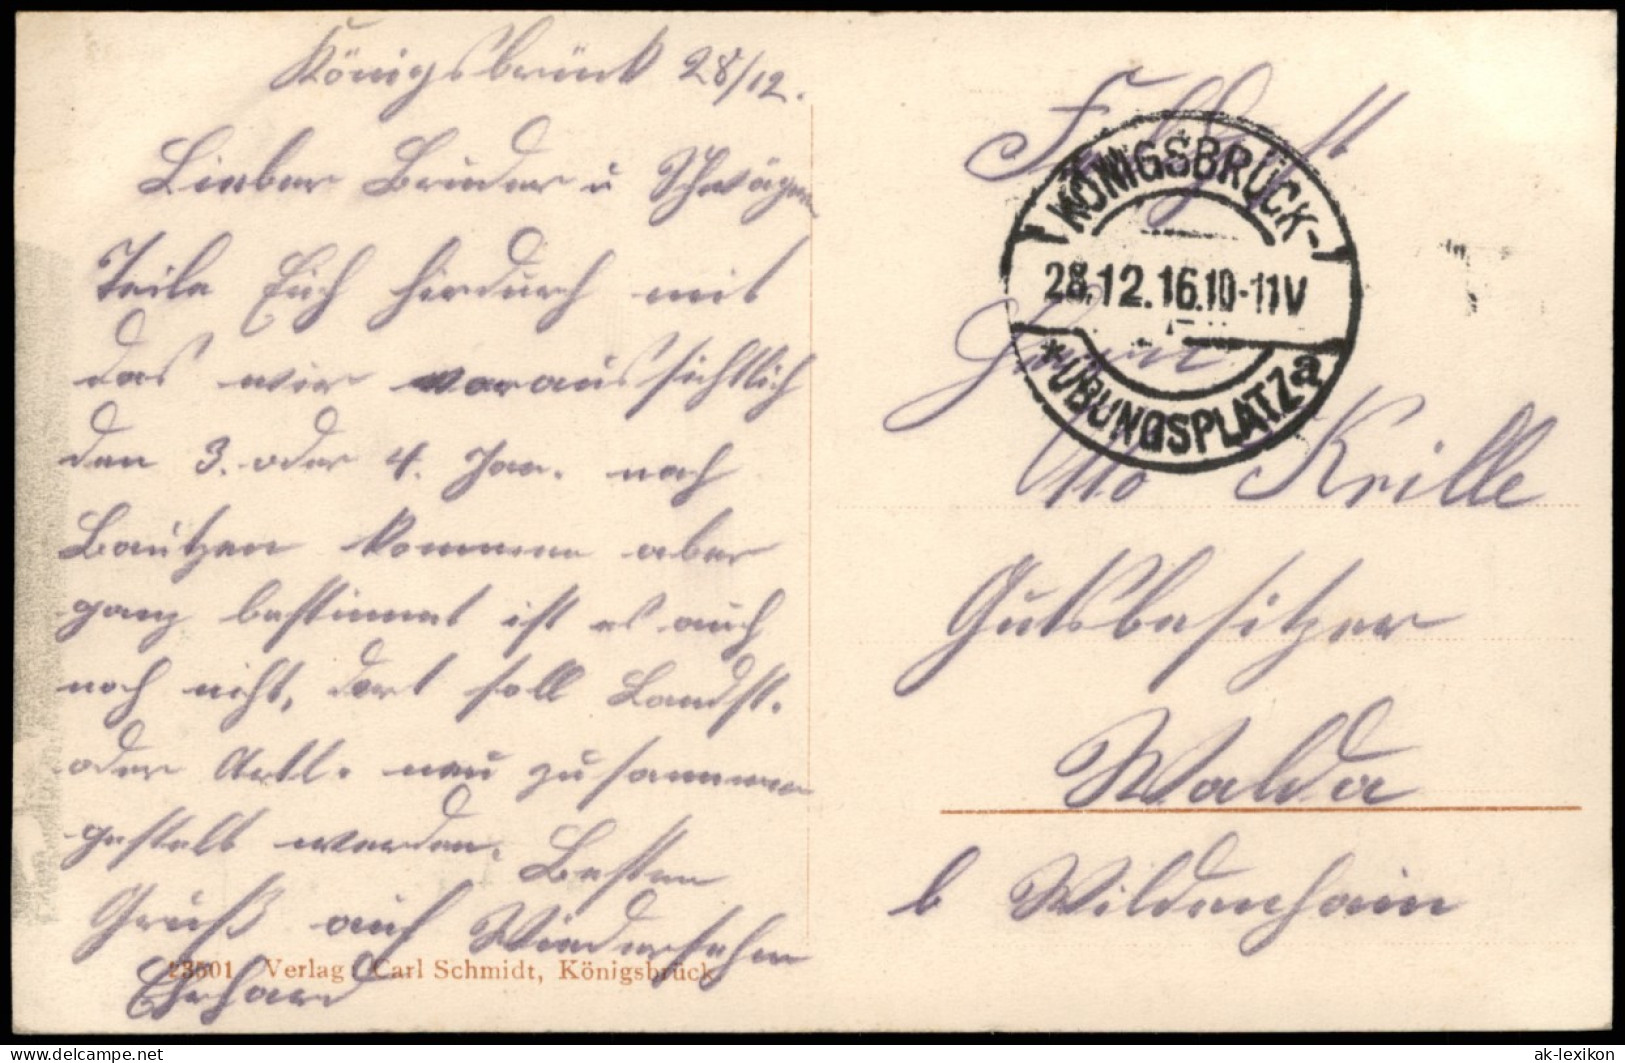 Königsbrück 28/12.
Lieber Bruder u Schwägerin
Teile Euch hirdurch mit
das wir voraussichtlich
den 3. oder 4. Jan. nach
Bautzen kommen aber
ganz bestimmt ist es auch
noch nicht, dort soll Landst.
oder Artl. neu zusammen
gestelt werden. Besten
Gruß auf Wiedersehen
Ehrhard
23501 Verlag Carl Schmidt, Königsbrück
Feldpost
KÖNIGSBRÜCK-
28.12.16.10-11V
*ÜBUNGSPLATZ a
Herrn
Otto Krille
Gutsbesitzer
Walda
b Wildenhain
ak-ansichtskarten.de
ak-lexikon